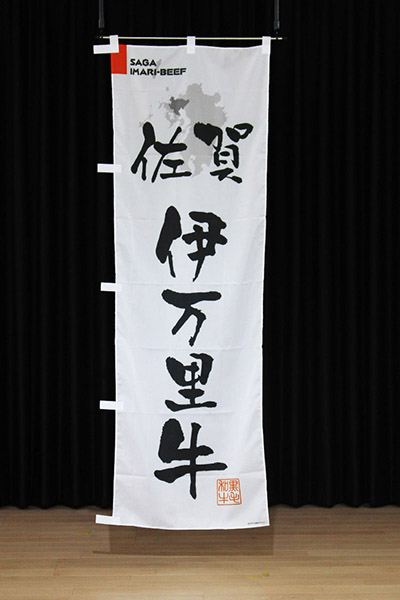 SAGA
IMARI-BEEF
佐賀
伊万里牛
黒毛
和牛